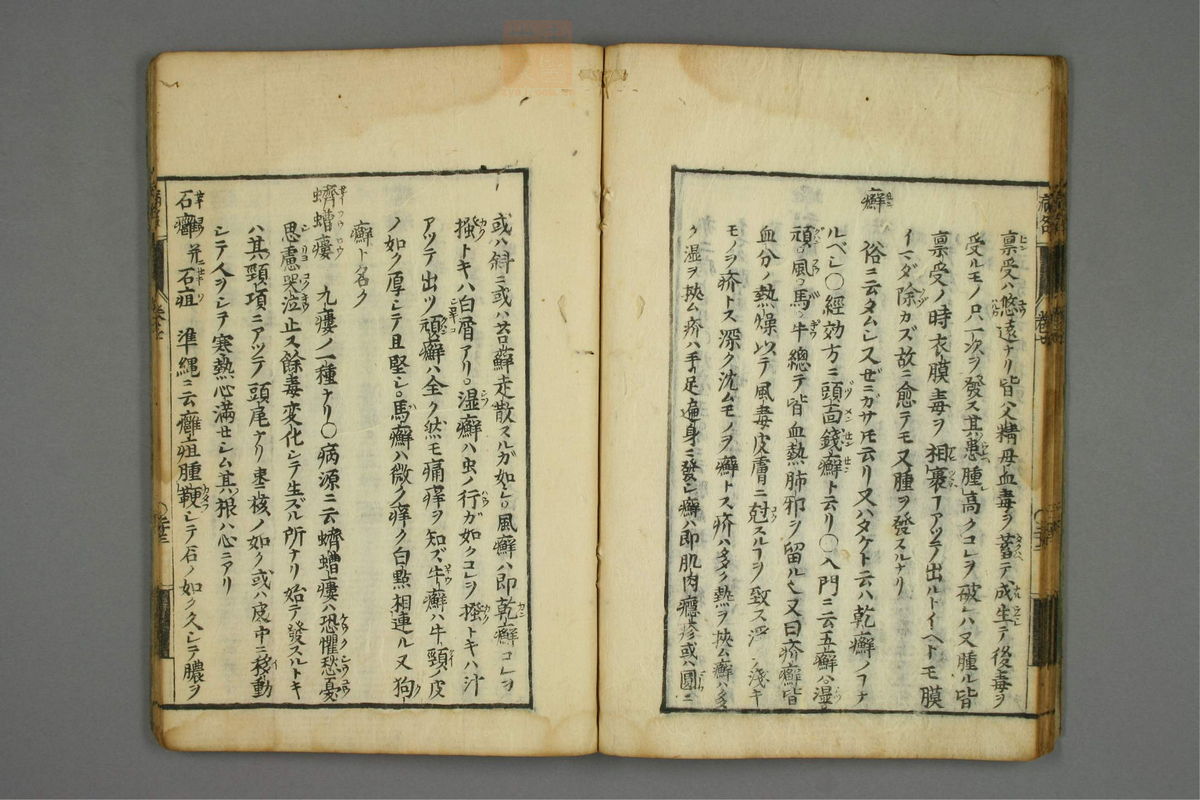 禀受ハ悠遠ナリ皆父精母血毒ヲ蓄テ成生テ後毒ヲ
受ルモノ只一次ヲ發ス其患腫高クコレヲ破レハ又腫ル皆
禀受ノ時衣膜毒ヲ相裹フアツテ出ルトイヘドモ膜
イマダ除カズ故ニ愈テモ又腫ヲ發スルナリ
癬
俗ニ云タムシ又ゼニガサ𪜈云リ又ハタケト云ハ乾癬ノフナ
ルベシ〇經効方ニ頭靣錢癬ト云リ〇入門ニ云五癬ハ湿
頑風馬牛總テ皆血熱肺邪ヲ留ル也又曰疥癬皆
血分ノ熱燥以テ風毒皮膚ニ尅スルフヲ致ス浮 浅キ
モノヲ疥トス深ク沈ムモノヲ癬トス疥ハ多ク熱ヲ挾ム癬ハ多
ク湿ヲ挾ム疥ハ手足遍身ニ發シ癬ハ即肌肉癮疹或ハ圓ニ
或ハ斜ニ或ハ苔蘚走散スルガ如シ風癬ハ即乾癬コレヲ
掻トキハ白屑アリ湿癬ハ虫ノ行ガ如クコレヲ掻トキハ汁
アツテ出ツ頑癬ハ全ク然モ痛痒ヲ知ズ牛癬ハ牛頸ノ皮
ノ如ク厚シテ且堅シ馬癬ハ微ク痒ク白點相連ル又狗
癬ト名ク
蠐螬瘻 九瘻ノ一種ナリ〇病源ニ云蠐螬瘻ハ恐懼愁憂
思慮哭泣止ス餘毒変化シテ生ズル所ナリ始テ發スルトキ
ハ其頸項ニアツテ頭尾ナリ棗核ノ如ク或ハ皮中ニ移動
シテ人ヲシテ寒熱心満セシム其根ハ心ニアリ
石癰 并石疽 準縄ニ云癰疽腫鞕シテ石ノ如ク久シテ膿ヲ